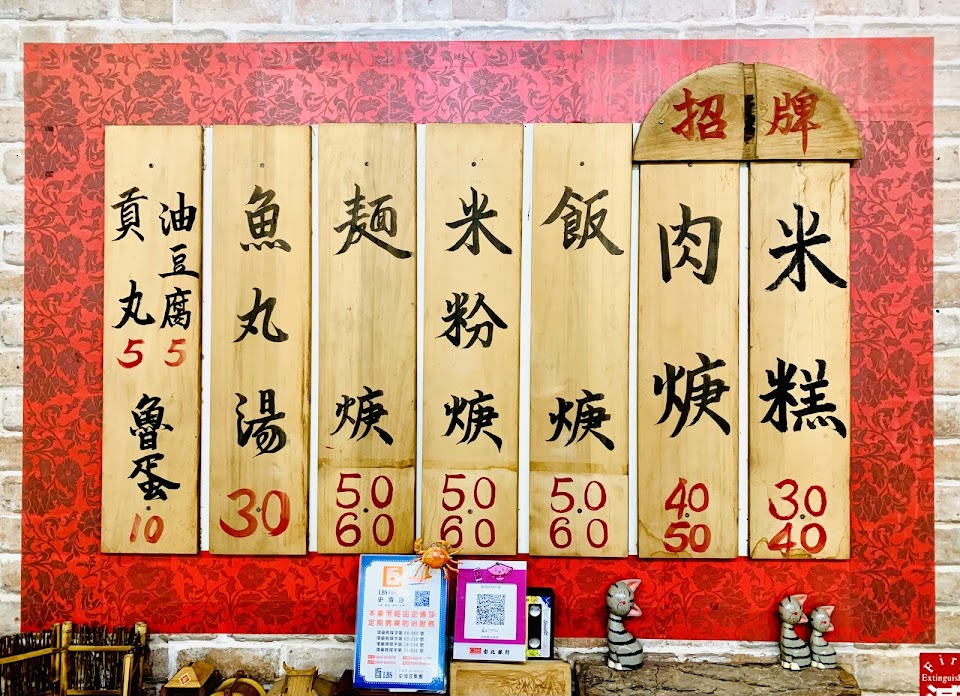 招牌
米糕
30
40
肉焿
40
50
飯焿
50
60
米粉焿
50
60
麵焿
50
60
魚丸湯
30
油豆腐
5
貢丸
5
魯蛋
10
史偉莎
定期病媒防治服務
LBS
彰化銀行
Fir
Extinguish